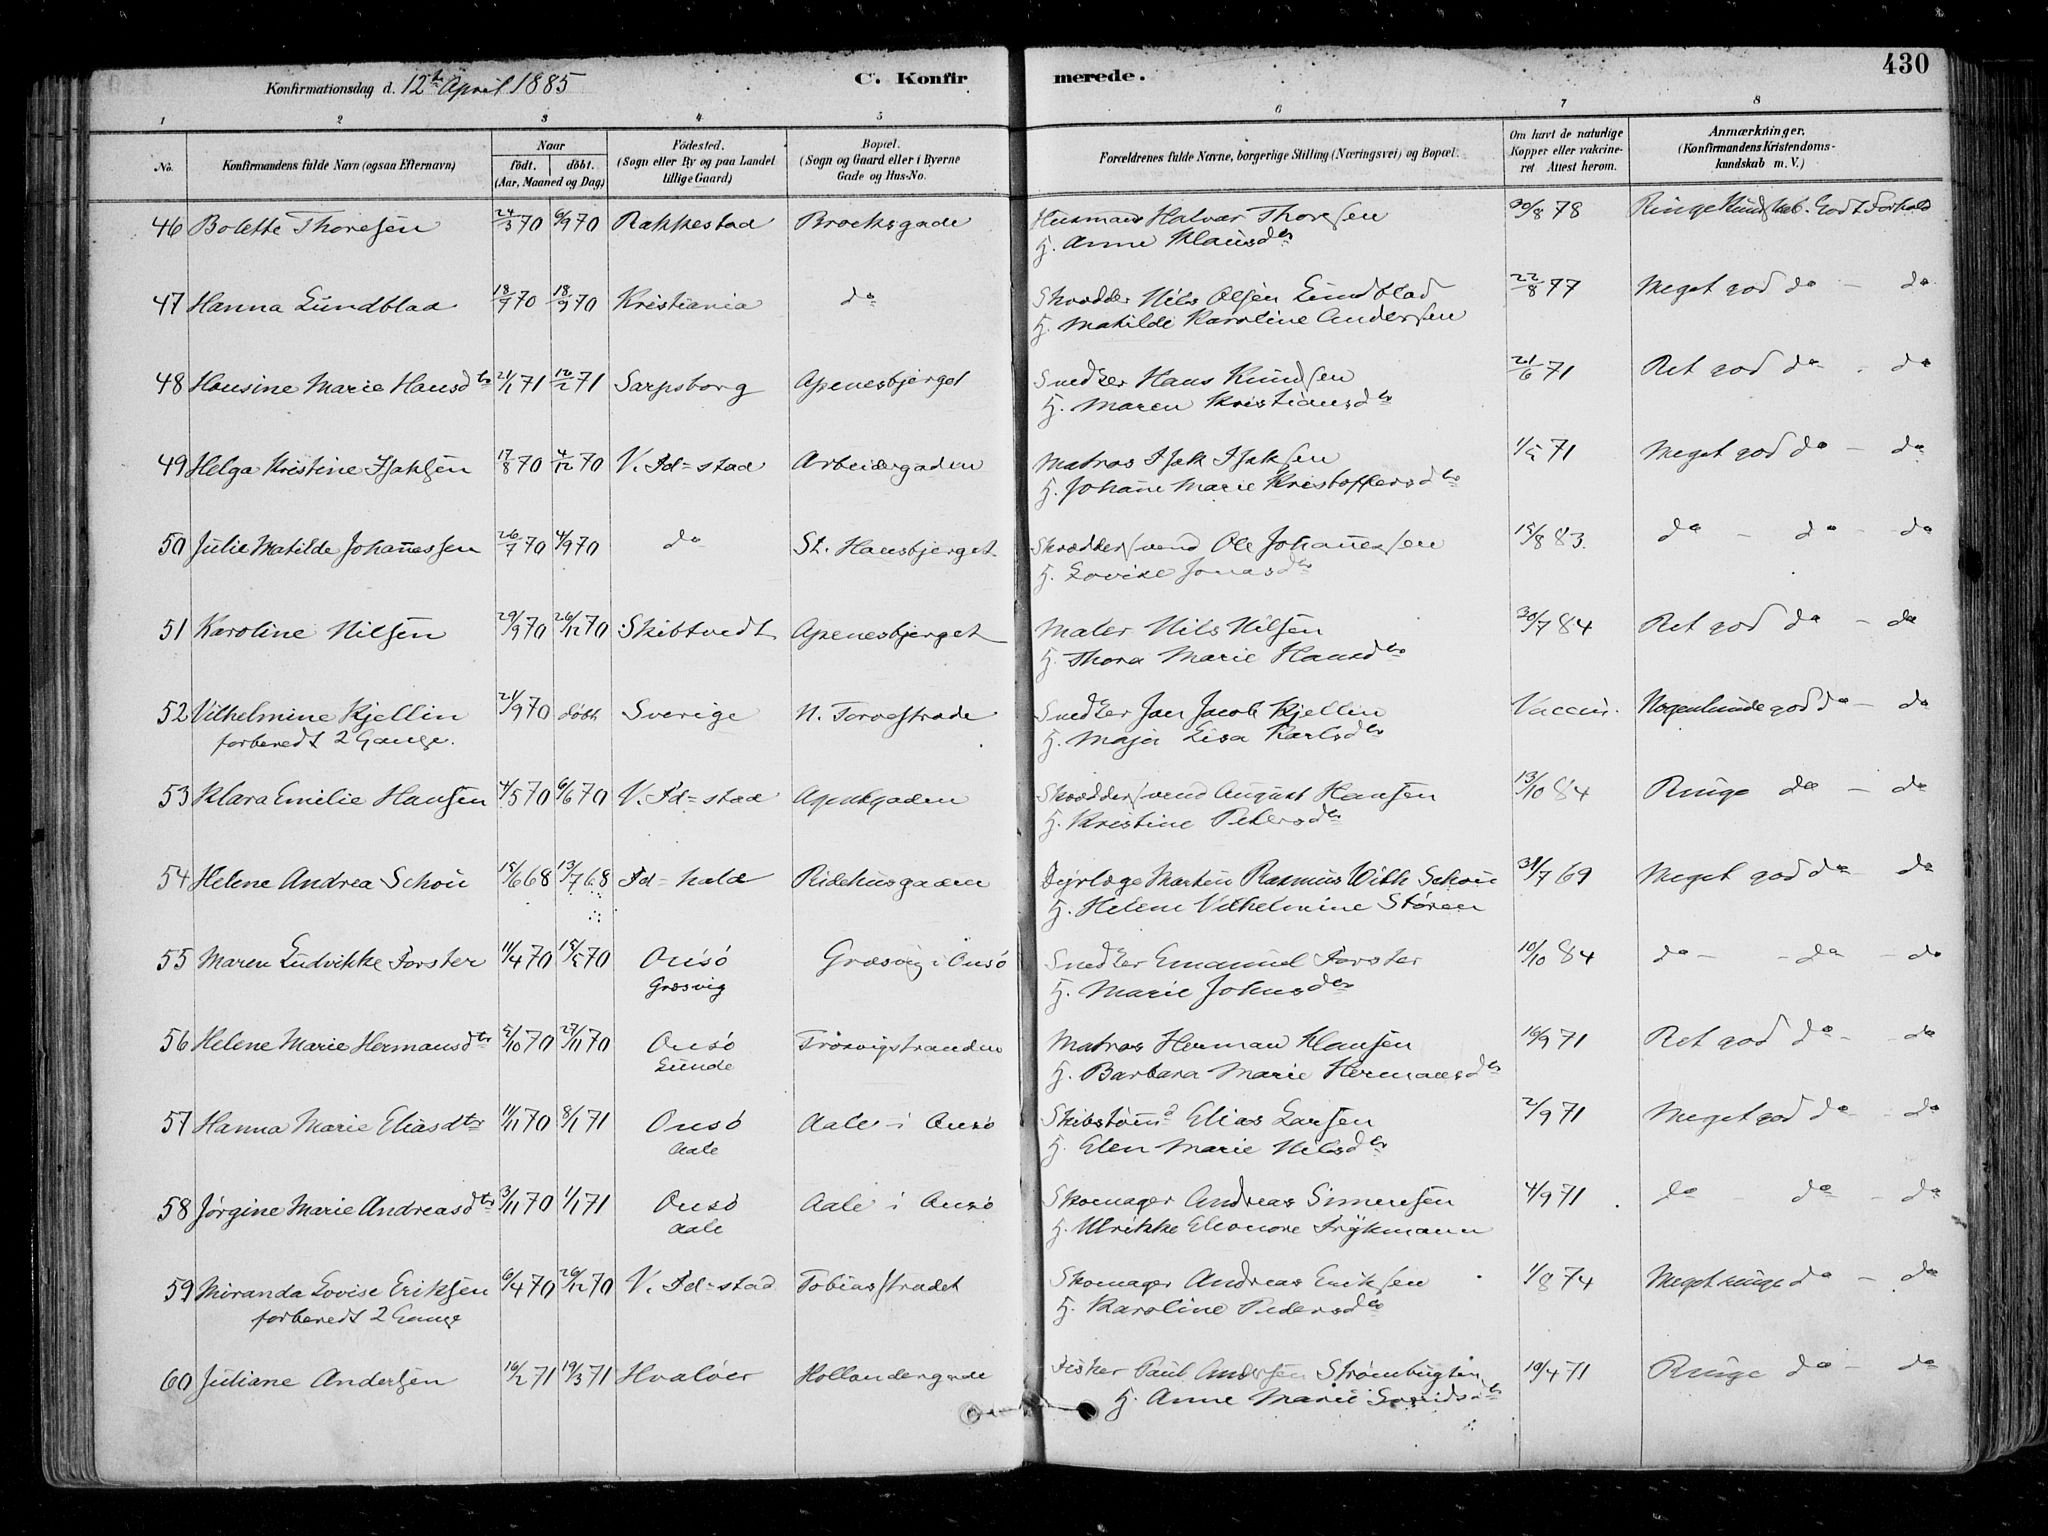 430
Konfirmationsdag d. 12te April 1885 C. Konfirmerede.
1 2 3 4 5 6 7 8
No. Konfirmandens fulde Navn (ogsaa Efternavn) Naar født. døbt. (Aar, Maaned og Dag) Födested. (Sogn eller By og paa Landet tillige Gaard) Bopæl. (Sogn og Gaard eller i Byerne Gade og Hus-No. Forældrenes fulde Navne, borgerlige Stilling (Næringsvei) og Bopæl. Om havt de naturlige Kopper eller vakcineret Attest herom. Anmærkninger. (Konfirmandens Kristendomskundskab m. V.)
46 Bolette Thoresen 24/3 70 6/9 70 Rakkestad Brocksgade Husmand Halvar Thoresen 30/8 78 Ringe Kundskab. Godt Forhold
H. Anne Klausdtr
47 Hanna Lundblad 18/7 70 18/9 70 Kristiania do Skrædder Nils Olsen Lundblad 22/8 77 Meget god do - do
H. Matilde Karoline Andersen
48 Hansine Marie Hansdtr 21/1 71 12/2 71 Sarpsborg Apenesbjerget Snedker Hans Knudsen 21/6 71 Ret god do - do
H. Maren Kristiansdtr
49 Helga Kristine Isaksen 17/8 70 4/12 70 V. Fd=stad Arbeidergaden Matros Isak Isaksen 1/5 71 Meget god do - do
H. Johanne Marie Kristoffersdtr
50 Julie Matilde Johannessen 26/7 70 4/9 70 do St. Hansbjerget Skræddersvend Ole Johannessen 15/8 83. do - do - do
H. Lovise Jonasdtr
51 Karoline Nilsen 29/9 70 26/12 70 Skibtvedt Apenesbjerget Maler Nils Nilsen 30/7 84 Ret god do - do
H. Thora Marie Hansdtr
52 Vilhelmine Kjellin 21/9 70 døbt Sverige N. Torvestræde Snedker Jan Jacob Kjellin Vaccin. Nogenlunde god do - do
forberedt 2 Gange. H. Maja Lisa Karlsdtr
53 Klara Emilie Hansen 4/5 70 6/6 70 V. Fd=stad Apenkgaden Skræddersvend August Hansen 13/10 84 Ringe do - do
H. Kristine Petersdtr
54 Helene Andrea Schou 15/6 68 13/7 68 Fd=hald Ridehusgaden Dyrlæge Martin Rasmus With Schou 31/7 69 Meget god do - do
H. Helene Vilhelmine Stören
55 Maren Ludvikke Forster 11/4 70 15/5 70 Onsö Græsvig i Onsö Snedker Emanuel Forster 10/10 84 do - - do - do
Græsvig H. Marie Johnsdtr
56 Helene Marie Hermansdtr 5/10 70 27/11 70 Onsö Trosvigstranden Matros Herman Klausen 16/9 71 Ret god do - do
Lunde H. Barbara Marie Hermansdtr
57 Hanna Marie Eliasdtr 11/11 70 8/1 71 Onsö Aale i Onsö Skibstømmd Elias Larsen 2/9 71 Meget god do - do
Aale H. Elen Marie Nilsdtr
58 Jørgine Marie Andreasdtr 3/11 70 1/1 71 Onsö Aale i Onsö Skomager Andreas Simensen 4/9 71 do - do - do
Aale H. Ulrikke Eleonore Frykmann
59 Miranda Lovise Eriksen 6/4 70 26/12 70 V. Fd=stad Tobiasstrædet Skomager Andreas Eriksen 1/8 74 Meget ringe do - do
forberedt 2 Gange H. Karoline Pedersdtr
60 Juliane Andersen 16/2 71 19/3 71 Hvaløer Hollandergade Fisker Paul Andersen Strømbugten 19/4 71 Ringe do - do
H. Anne Marie